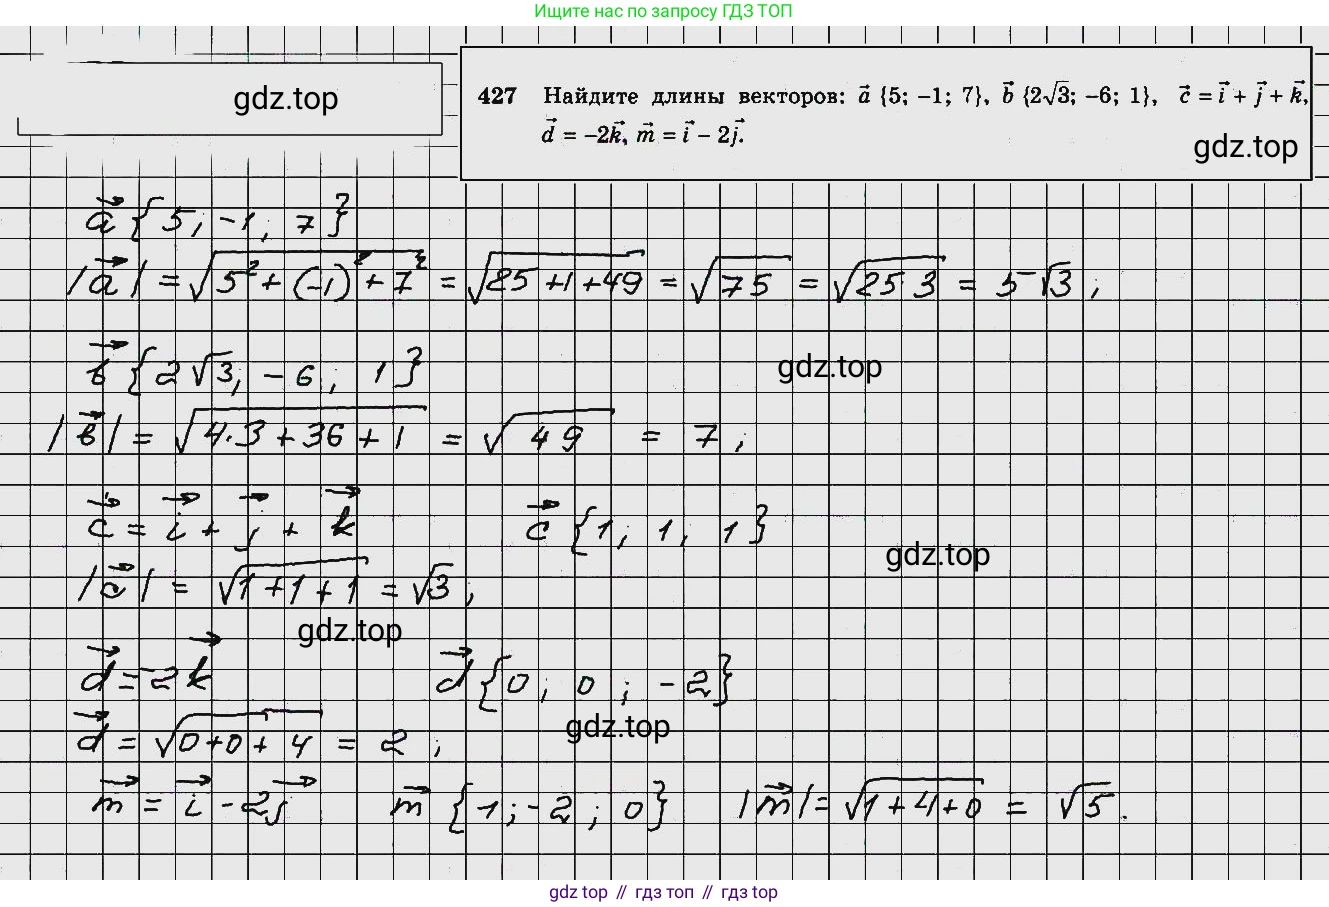 Ищите нас по запросу ГДЗ ТОП
gdz.top
427 Найдите длины векторов: a⃗ {5; −1; 7}, b⃗ {2√3; −6; 1}, c⃗ = i⃗ + j⃗ + k⃗,
d⃗ = −2k⃗, m⃗ = i⃗ − 2j⃗.
gdz.top
a⃗ {5; -1; 7}
|a⃗| = √(5² + (-1)² + 7²) = √(25 + 1 + 49) = √75 = √(25·3) = 5√3;
в⃗ {2√3; -6; 1}
gdz.top
|в⃗| = √(4·3 + 36 + 1) = √49 = 7;
c⃗ = i⃗ + j⃗ + k⃗ c⃗ {1; 1; 1}
gdz.top
|a⃗| = √(1 + 1 + 1) = √3;
gdz.top
d⃗ = -2k⃗ d⃗ {0; 0; -2}
d⃗ = √(0 + 0 + 4) = 2;
gdz.top
m⃗ = i⃗ - 2j⃗ m⃗ {1; -2; 0} |m⃗| = √(1 + 4 + 0) = √5.
gdz top // гдз топ // gdz top